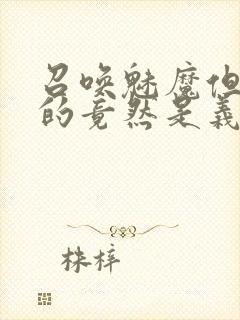 召唤魅魔但
的竟然是义
株梓